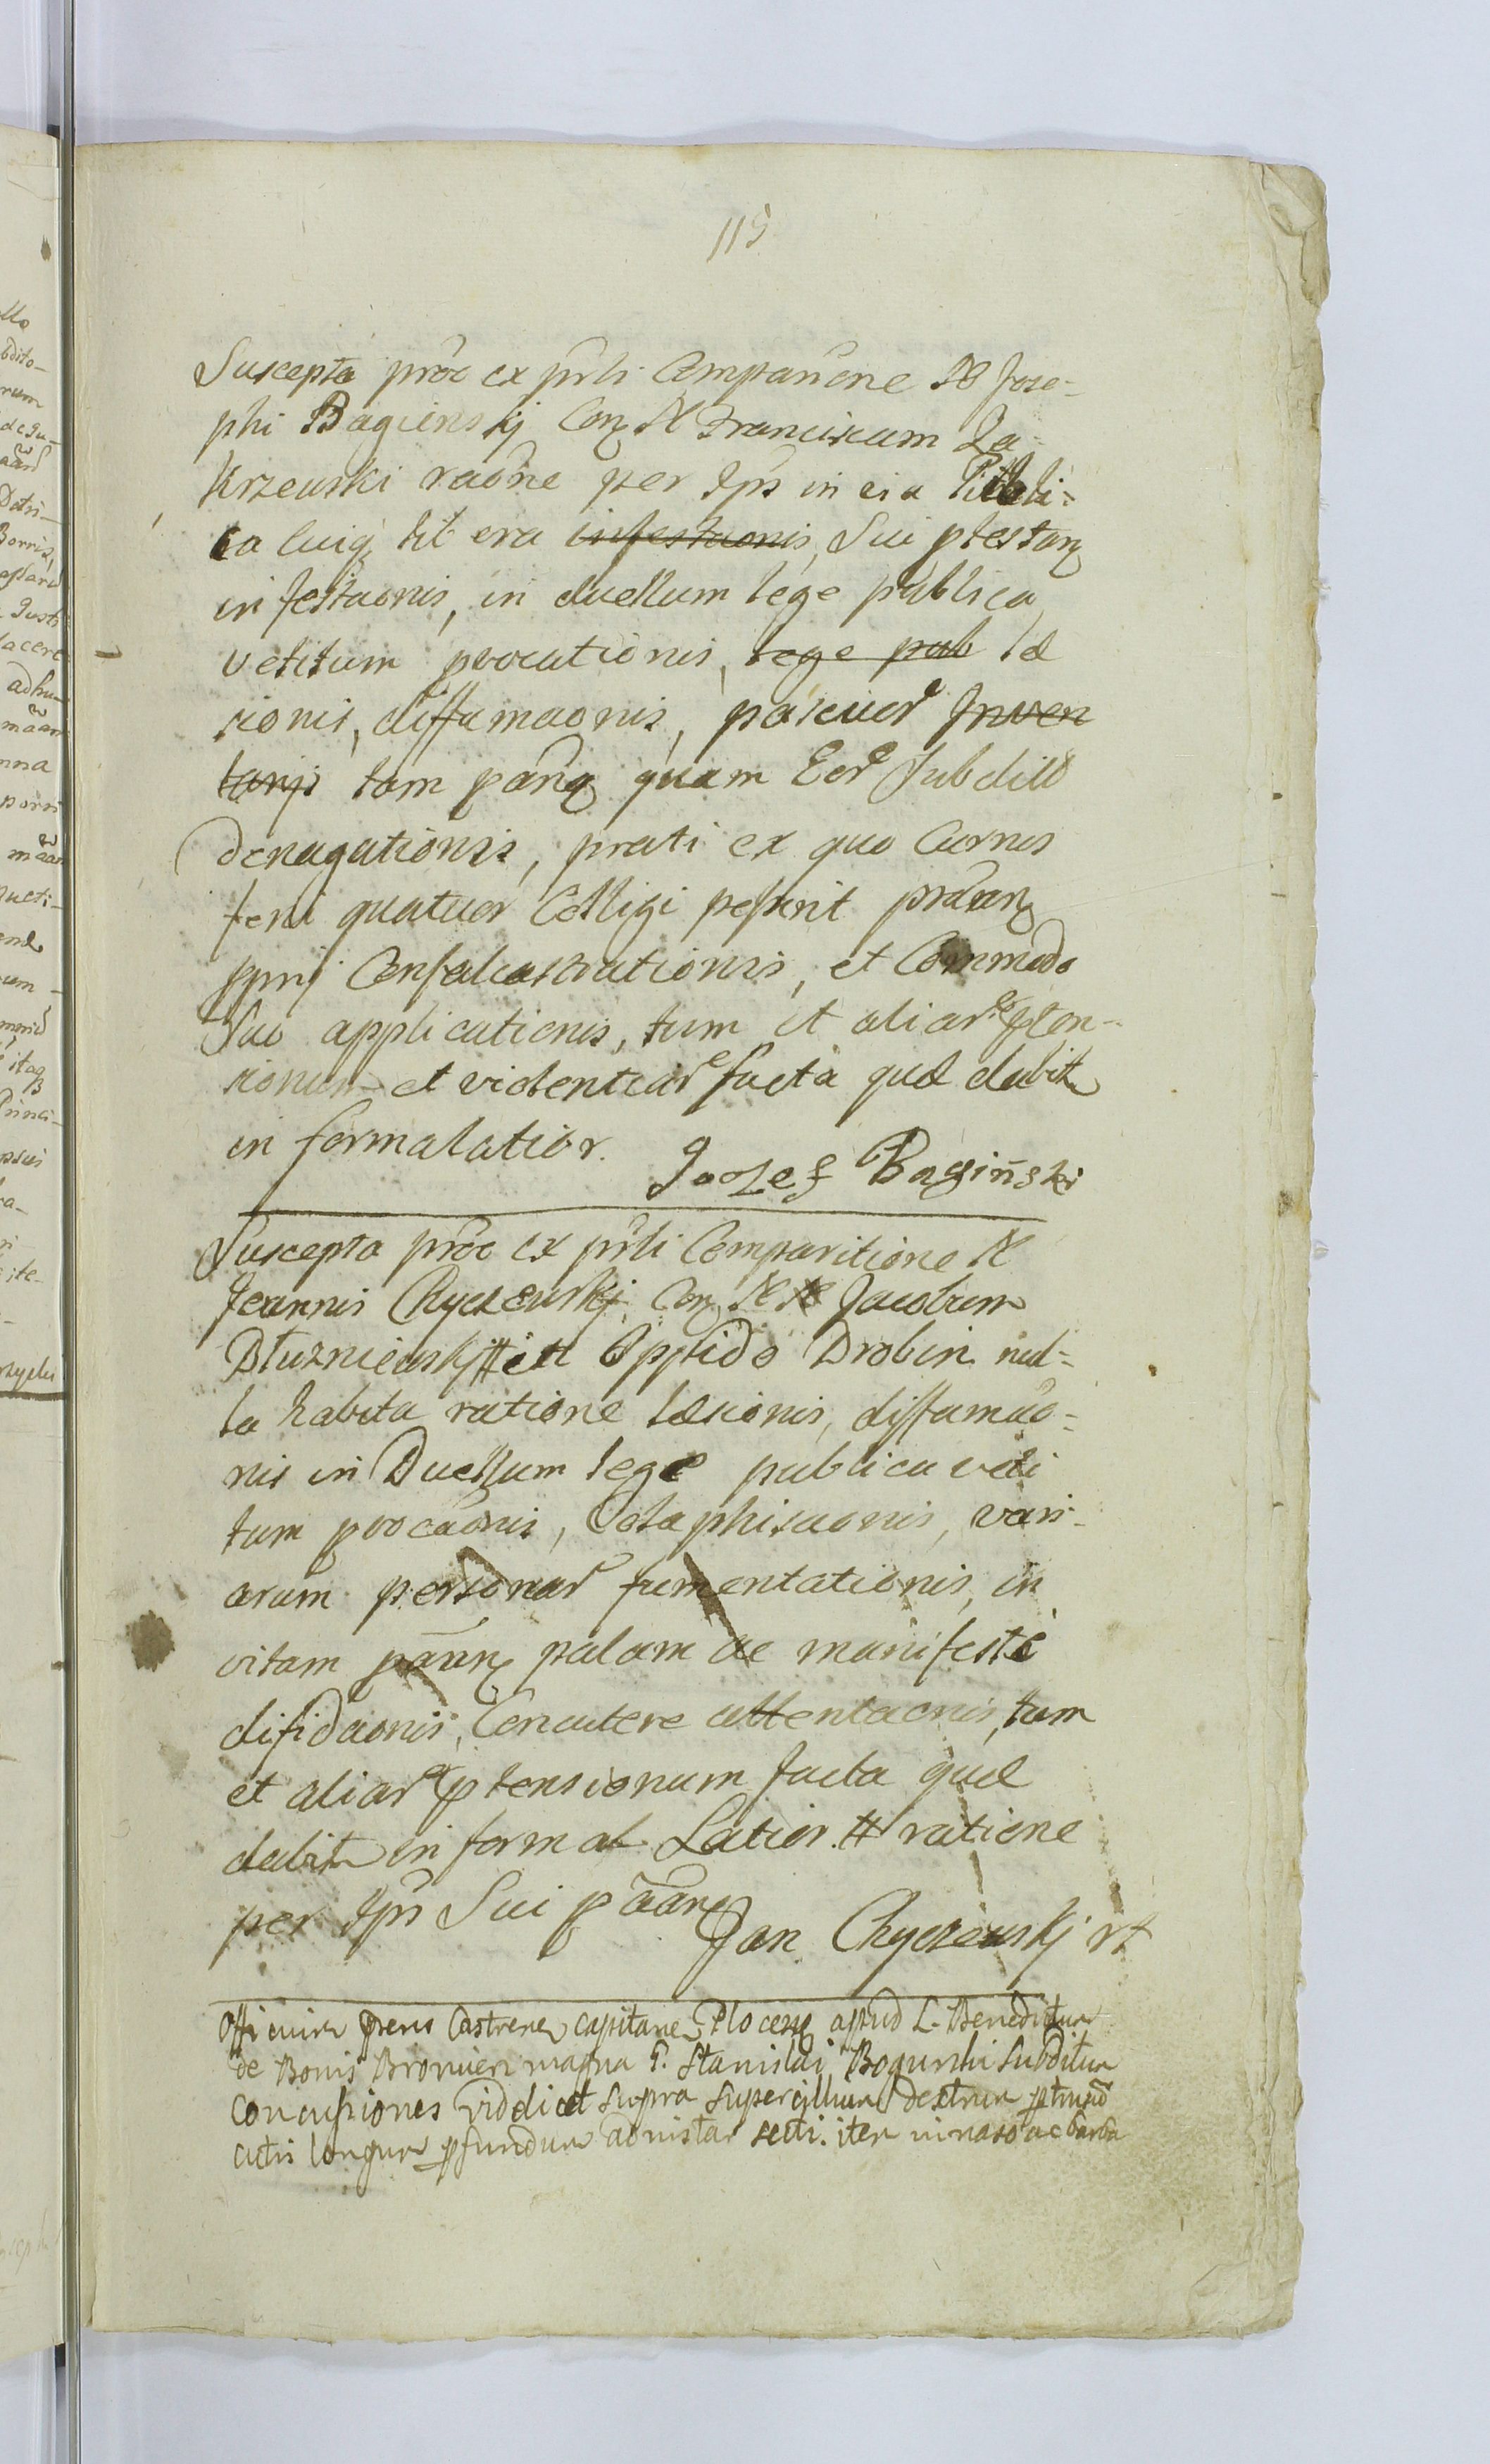 115
Suscepta proc ex prli Comparicione N Jose-
phi Bagienskj Con N Franciscum Za-
Krzewski raone per Ips in eia Publi-
ca luiq tit era infestaonis, Sui ptestan
infestaonis, in duellum lege publica
vetitum pvocationis, lege pub læ
sionis, diffamaonis, pascuor Inven
tarijs tam panq quam Eor Subdito
denagationis, prati ex quo Currus
feni quatuor Colligi possint praran
ppnj Confalcastrationis, et Commodo
Suo applicationis, tum et aliar pten-
sionum et violentiar facta quæ dabit
in forma latior. Jozef Bagiński
Suscepta proc ex prli Comparitione N
Joannis Chyczewskj, Con N N Jacobum
Dłuzniewskj # in Oppido Drobin nul-
la habita ratione læsionis, diffamao-
nis in Duellum lege publica veti
tum pvocaonis, Colaphisaonis, vari-
arum personar fumentationis, in
vitam paran palam ac manifeste
difidaonis, Concutere attentaonis, tum
et aliar ptensionum facta quæ
dabit in forma Latior. # ratione
per Ips Sui paran
Jan Chyczewskj
Officium prens Castrene capitane Plocens apud L. Benedictum
de Bonis Bromierz magna G. Stanislai Bogunski Subditum
Concussiones viddicet supra supercillium dextrum
cutis longum pfundum adinstar secti. item in naso ac barba